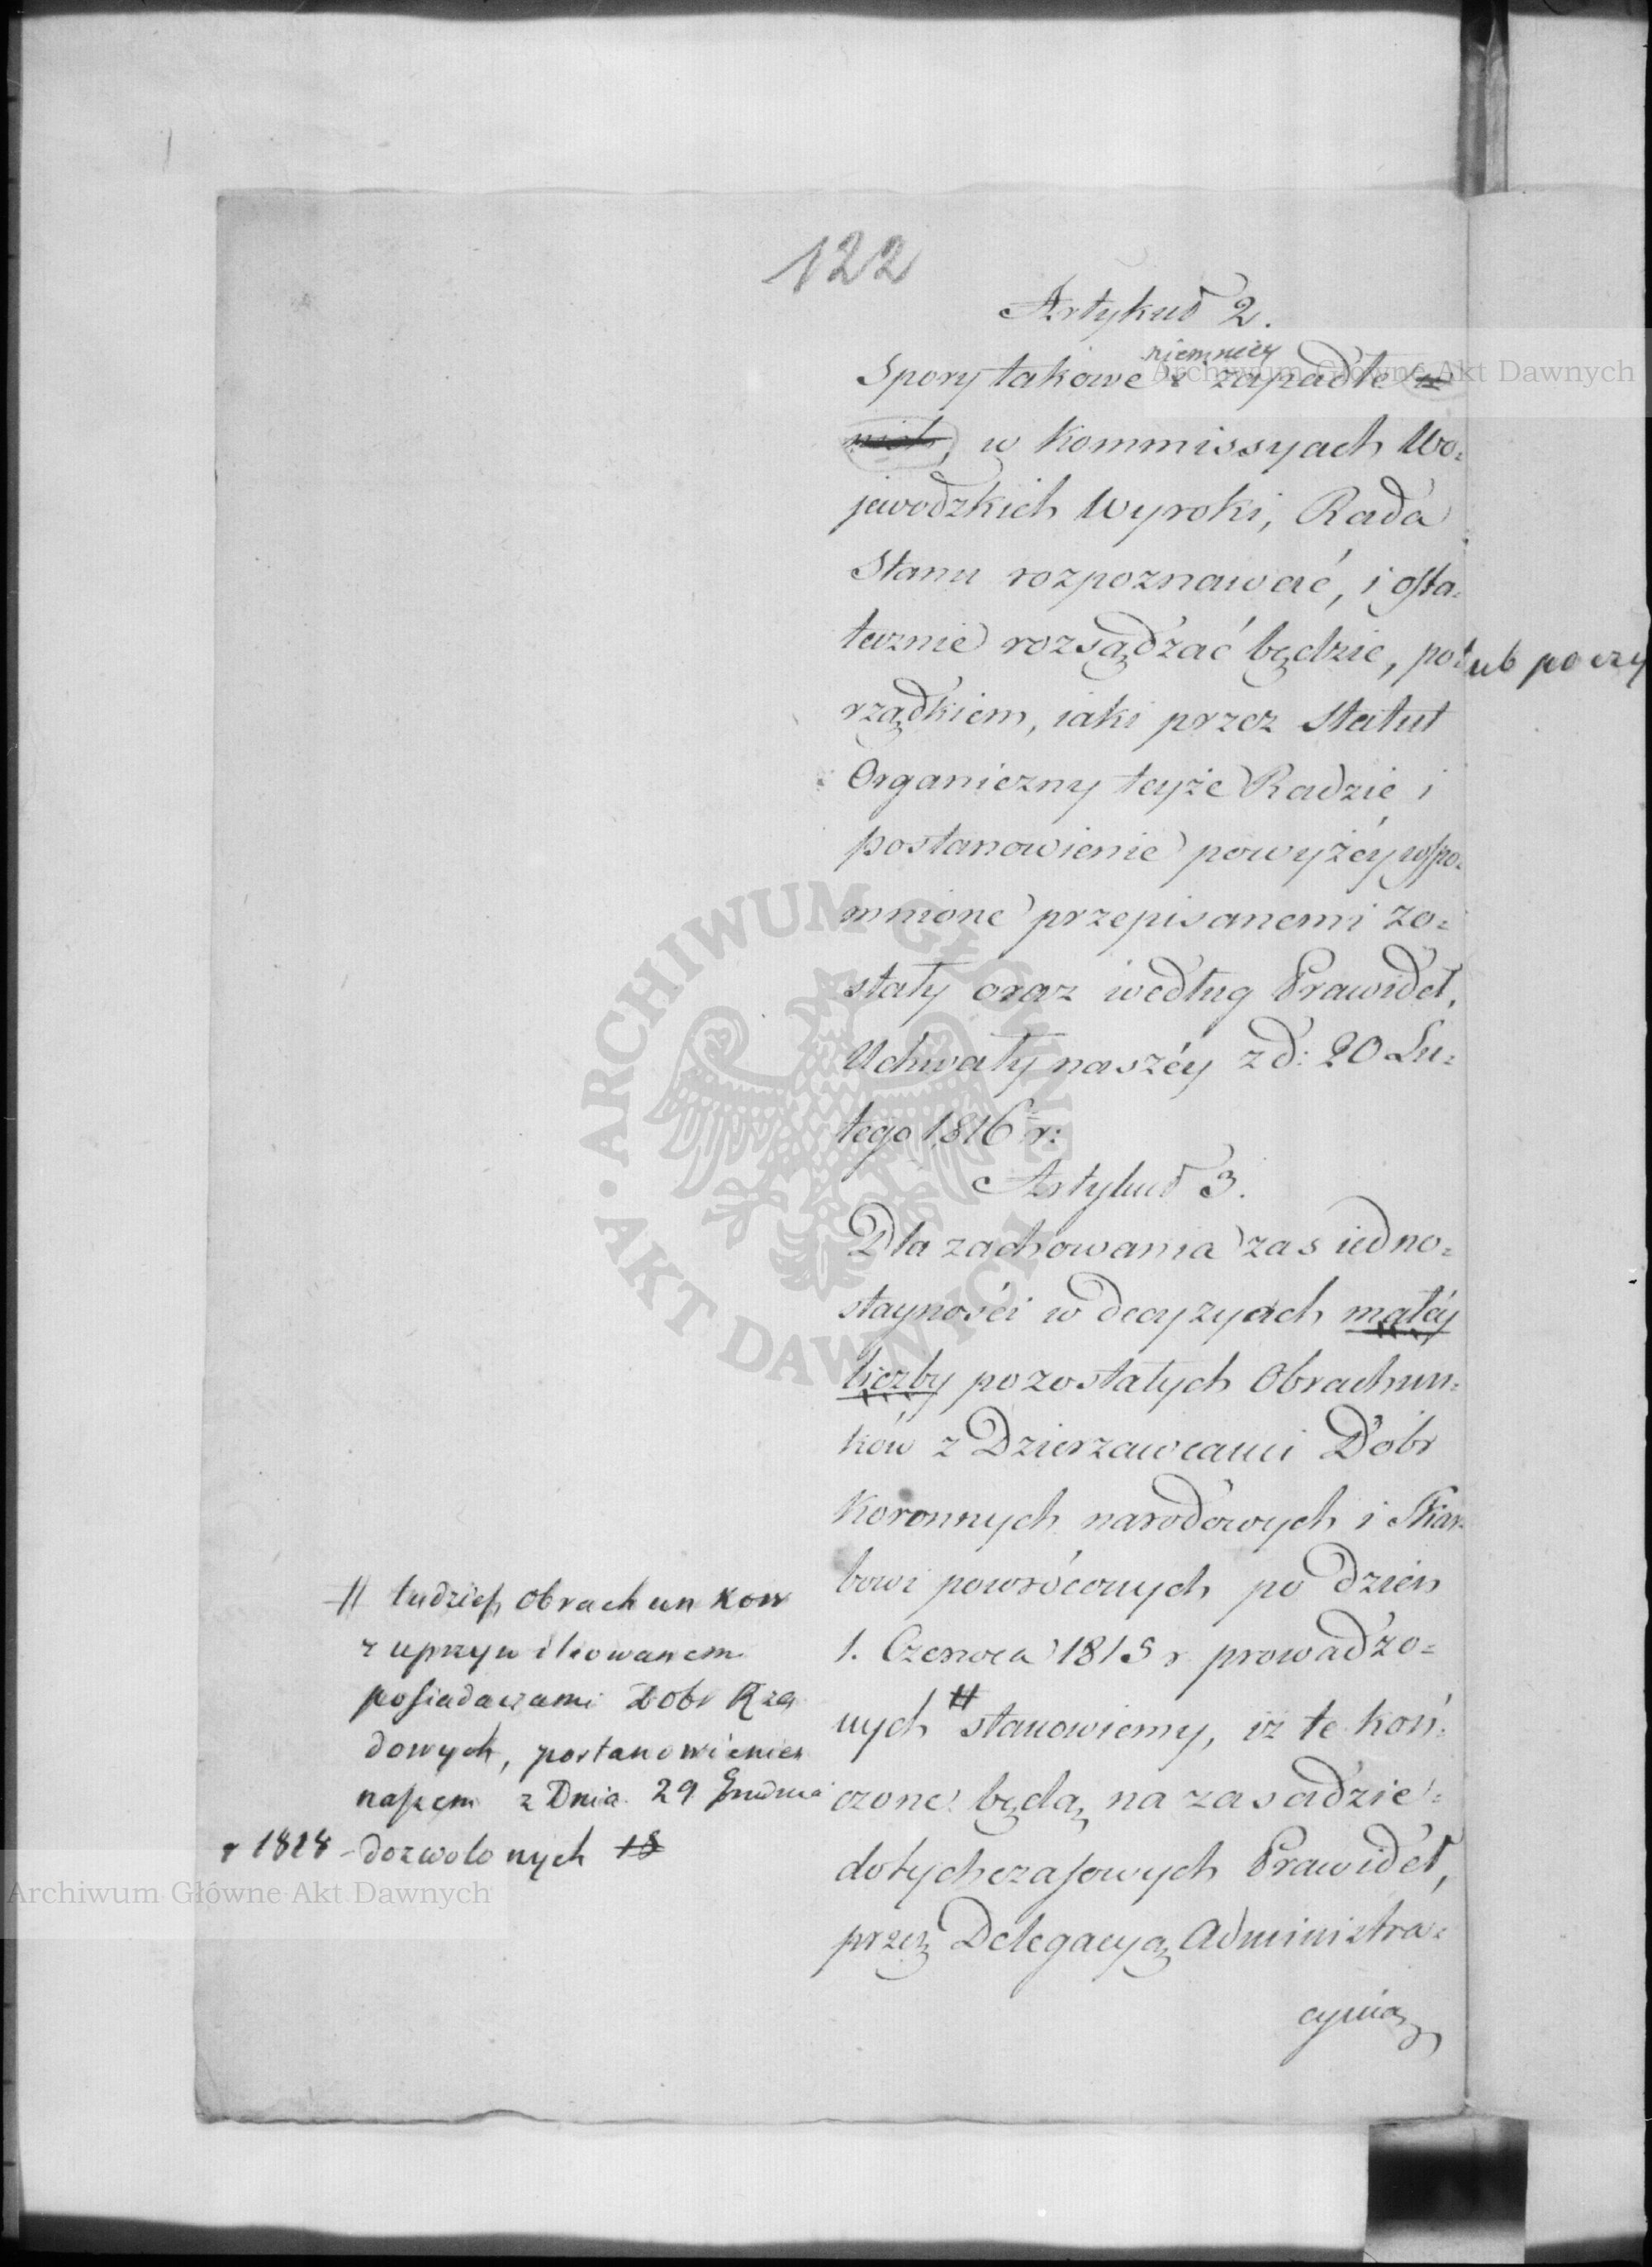 122
Artykuł 2.
niemniey
Spory takowe i zapadłe w
nich, w Kommissyach Wo=
jewodzkich Wyroki, Rada
Stanu rozpoznawać, i osta=
tecznie rozsądzać będzie, po
ub poczy
rządkiem, iaki przez Statut
Organiczny teyże Radzie i
postanowienie powyżéy wspo=
mnione przepisanemi zo=
stały oraz według Prawideł,
Uchwały naszéy z d: 20 Lu=
tego 1816 r:
Artykuł 3.
Dla zachowania zas iedno=
stayności w decyzyach małéy
liczby pozostałych Obrachun=
ków z Dzierzawcami Dóbr
Koronnych narodowych i Skar=
bowi powróconych po dzien
1. Czerwca 1815 r prowadzo=
nych # stanowiemy, iz te koń=
czone będą na zasadzie
dotychczasowych Prawideł,
przez Delegacyą Administra=
cyiną
# tudzież Obrachunkow
z uprzywileiowanem
posiadaczami Dobr Rzą
dowych, postanowieniem
naszem z Dnia 29 Grudnia
r 1818 - dozwolonych 18
ARCHIWUM GŁÓWNE AKT DAWNYCH
Archiwum Główne Akt Dawnych
Archiwum Główne Akt Dawnych